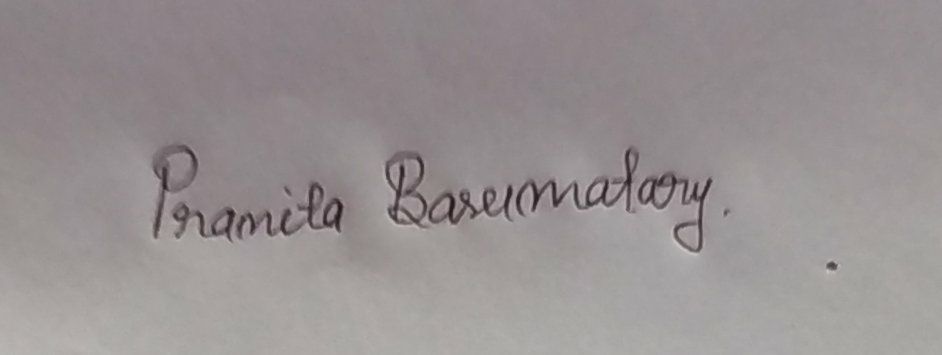 Pramita Basumatary.